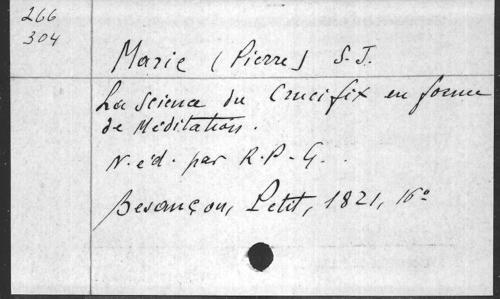 266
304
Marie (Pierre) S.J.
La Science du Crucifix en forme
de Méditation.
N. éd. par R.P.G.
Besançon, Petit, 1821, 16º